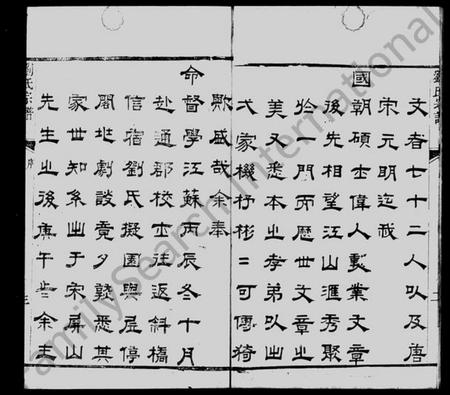 文者七十二人以及唐
宋元明迄我
國朝碩士偉人勳業文章
後先相望江山滙秀聚
於一門而歷世文章之
美又悉本之孝弟以出
弋蒙機杼彬=可傳猗
歟盛哉余奉
命督學江蘇丙辰冬十月
赴通郡校士往返斜橋
信宿劉氏擬園與屋停
閣地劇談竟夕聽悉其
家世知系出于宋屏山
先生之後庚午些余主
劉氏宗譜
序
三
FamilySearch International